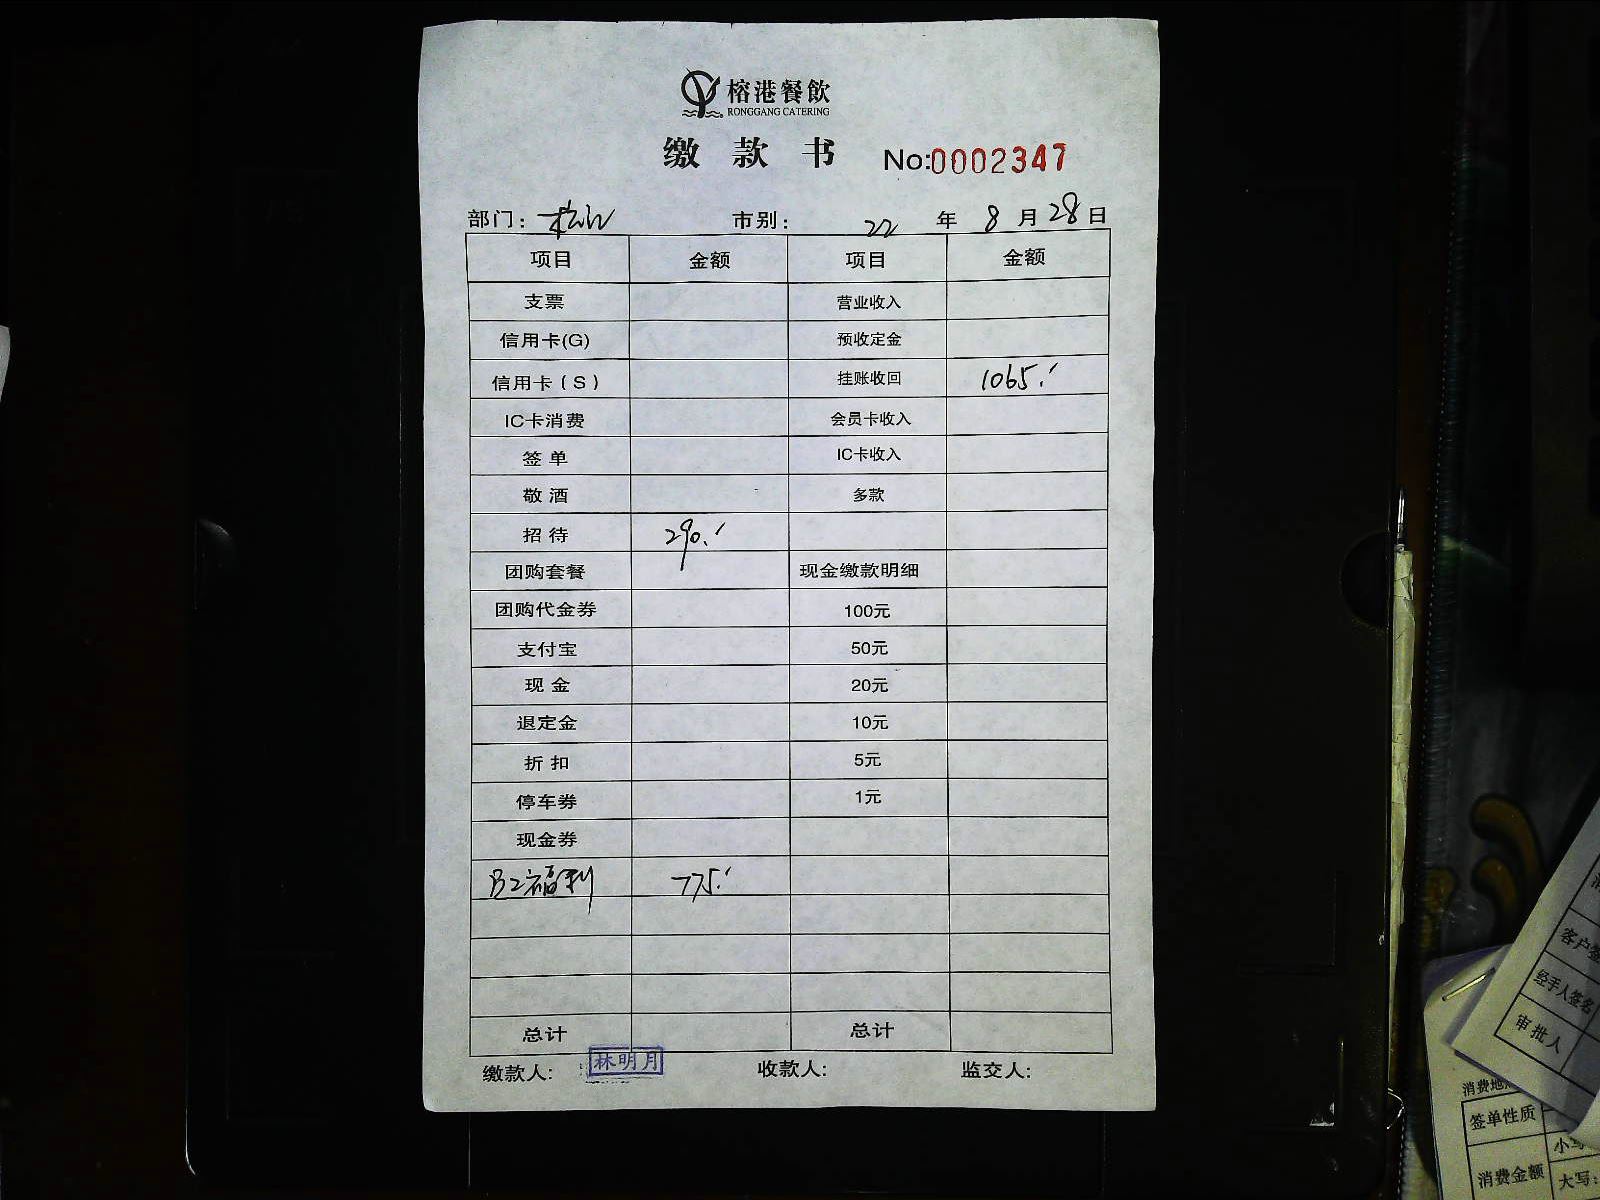 榕港餐飲
RONGGANG CATERING
缴款书 No:0002347
部门: 松江 市别: 22 年 8 月 28 日
项目 金额 项目 金额
支票 营业收入
信用卡(G) 预收定金
信用卡(S) 挂账收回 1065.-
IC卡消费 会员卡收入
签单 IC卡收入
敬酒 多款
招待 290.-
团购套餐 现金缴款明细
团购代金券 100元
支付宝 50元
现金 20元
退定金 10元
折扣 5元
停车券 1元
现金券
B2福利 775.-
总计 总计
缴款人: 林明月 收款人: 监交人:
客户签
经手人签名
审批人
消费地
签单性质
小写
消费金额
大写: